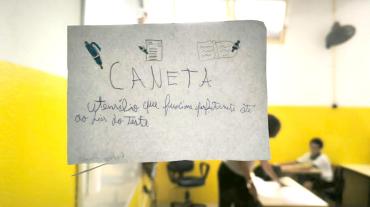 CANETA
Utensílio que funciona perfeitamente até
ao dia do teste